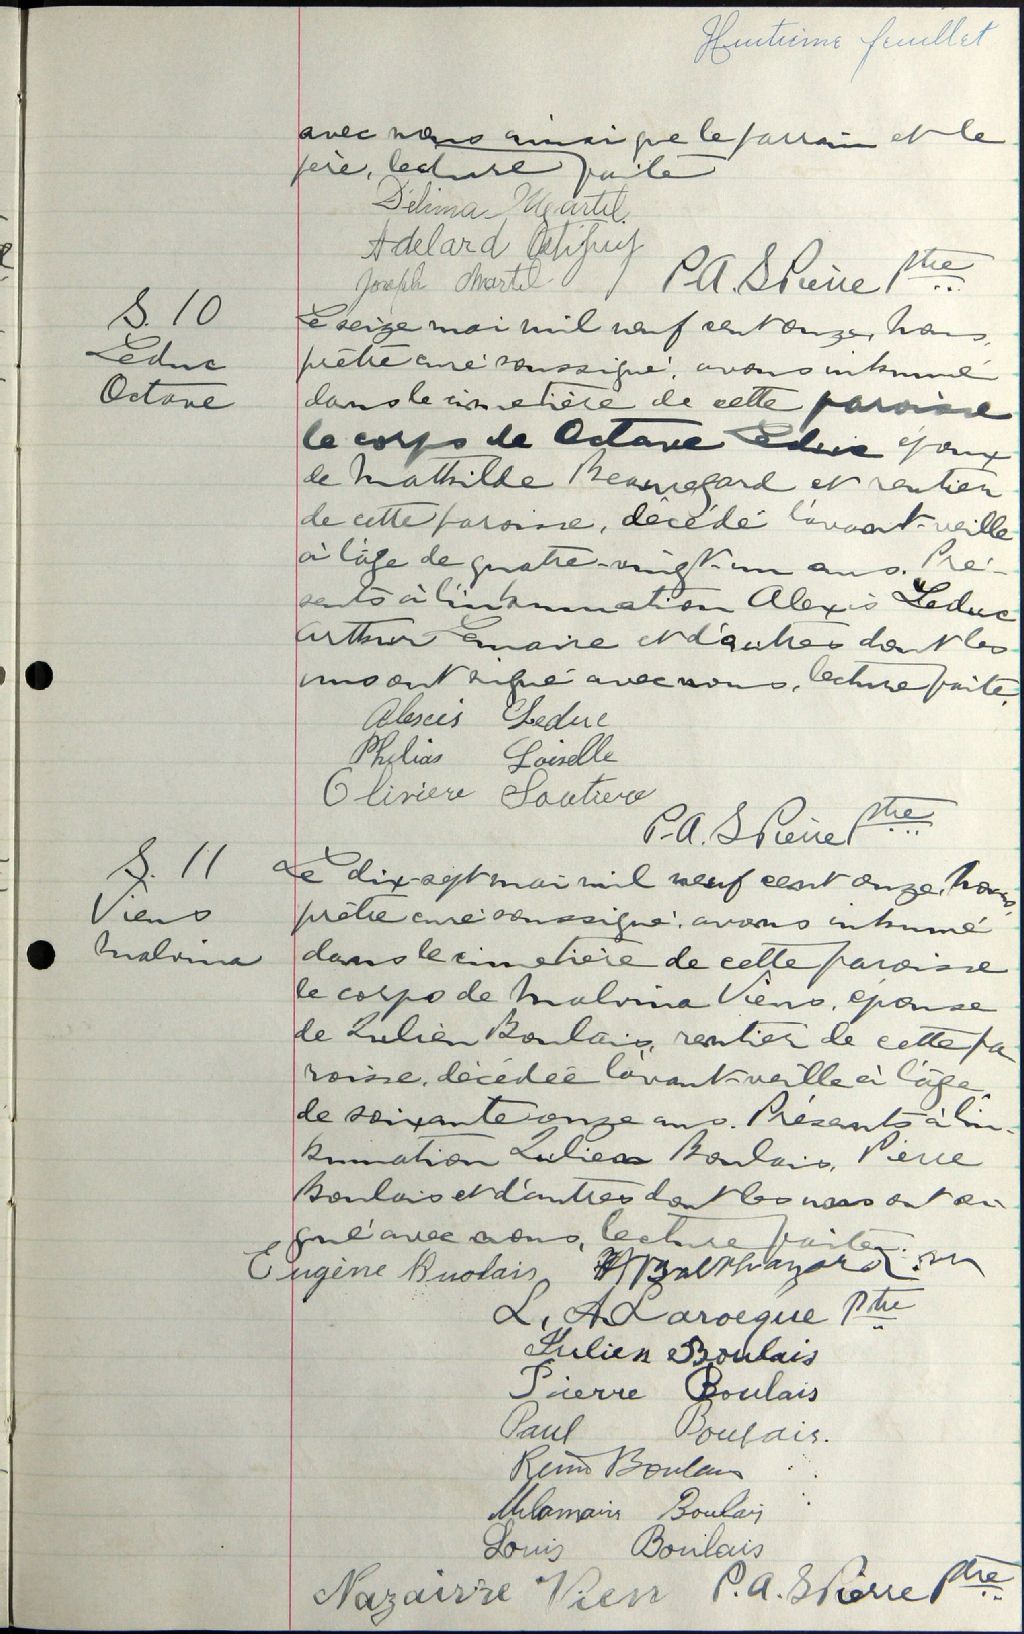 Huitième feuillet
avec nous ainsi que le parrain et le
père, lecture faite
Délima Martel.
Adelard Ostiguy
Joseph Martel
P. A. S Pierre Ptre
S. 10
Leduc
Octave
Le seize mai mil neuf cent onze, Nous,
prêtre curé soussigné, avons inhumé
dans le cimetière de cette paroisse
le corps de Octave Leduc époux
de Mathilde Beauregard et rentier
de cette paroisse, décédé l'avant-veille
à l'âge de quatre-vingt-un ans. Pré-
sents à l'inhumation Alexis Leduc
Arthur Lemaire et d'autres dont les
uns ont signé avec nous, lecture faite.
Alexis Leduc
Philias Loiselle
Oliviere Santiere
P. A. S Pierre Ptre
S. 11
Viens
Malvina
Le dix-sept mai mil neuf cent onze, Nous,
prêtre curé soussigné, avons inhumé
dans le cimetière de cette paroisse
le corps de Malvina Viens, épouse
de Julien Boulais, rentier de cette pa
roisse, décédée l'avant-veille à l'âge
de soixante onze ans. Présents à l'in-
humation Julien Boulais, Pierre
Boulais et d'autres dont les uns ont si-
gné avec nous, lecture faite.
Eugène Buolais
L. A. Larocque Ptre
Julien Boulais
Pierre Boulais
Paul Boulais.
Boulais
Boulais
Louis Boulais
Nazairre Vien P. A. S Pierre Ptre